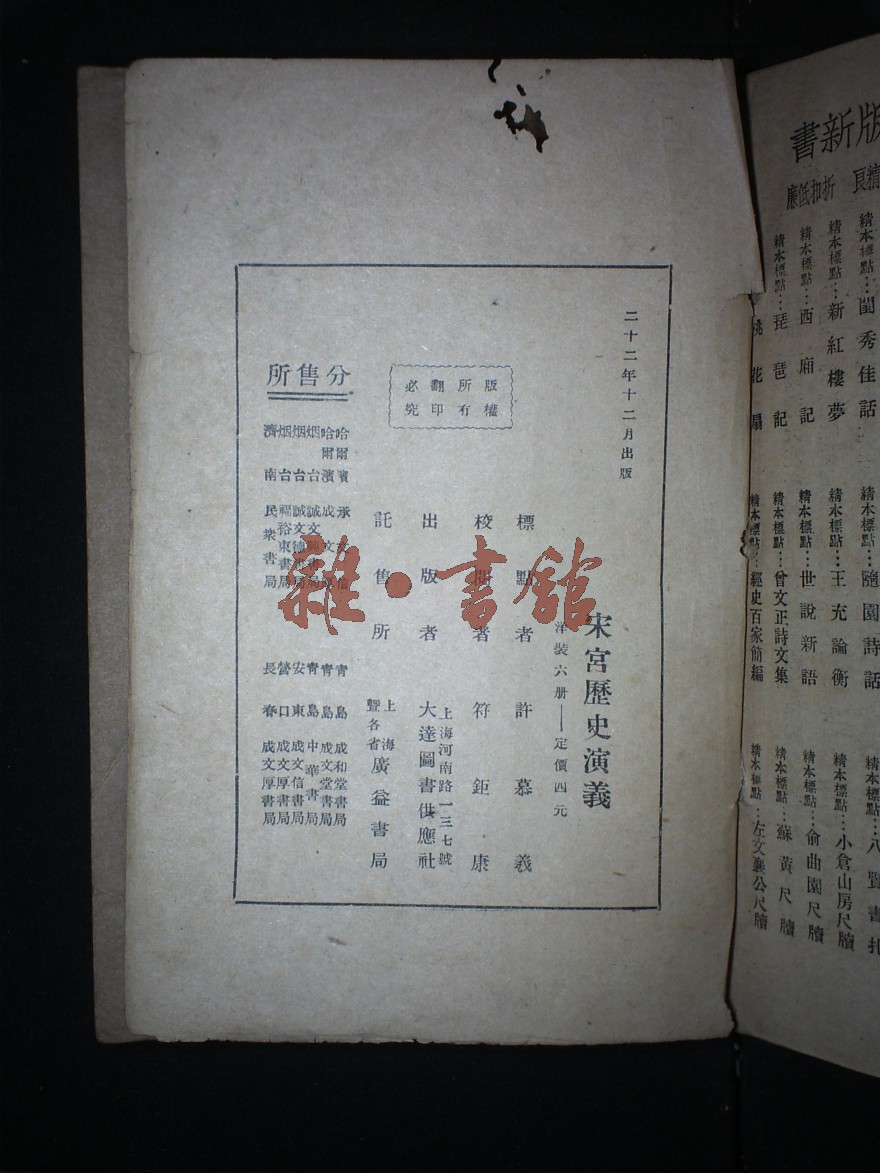 二十二年十二月出版
宋宮歷史演義
洋裝六册——定價四元
標點者 許慕羲
校閱者 符鉅康
出版者 上海河南路一三七號
大達圖書供應社
託售所 上海
暨各省 廣益書局
版權所有
翻印必究
分售所
哈爾濱
哈爾濱 成文
烟台 誠文
烟台 誠文德書局
烟台 福裕東書局
濟南 民衆書局
青島 成和堂書局
青島 成文堂書局
青島 中華書局
安東 成文信書局
營口 成文厚書局
長春 成文厚書局
雜·書館
版新書
精良 折扣低廉
精本標點…閨秀佳話
精本標點…隨園詩話
精本標點…八賢書札
精本標點…新紅樓夢
精本標點…王充論衡
精本標點…小倉山房尺牘
精本標點…西廂記
精本標點…世說新語
精本標點…俞曲園尺牘
精本標點…琵琶記
精本標點…曾文正詩文集
精本標點…蘇黃尺牘
桃花扇
精本標點…經史百家簡編
精本標點…左文襄公尺牘